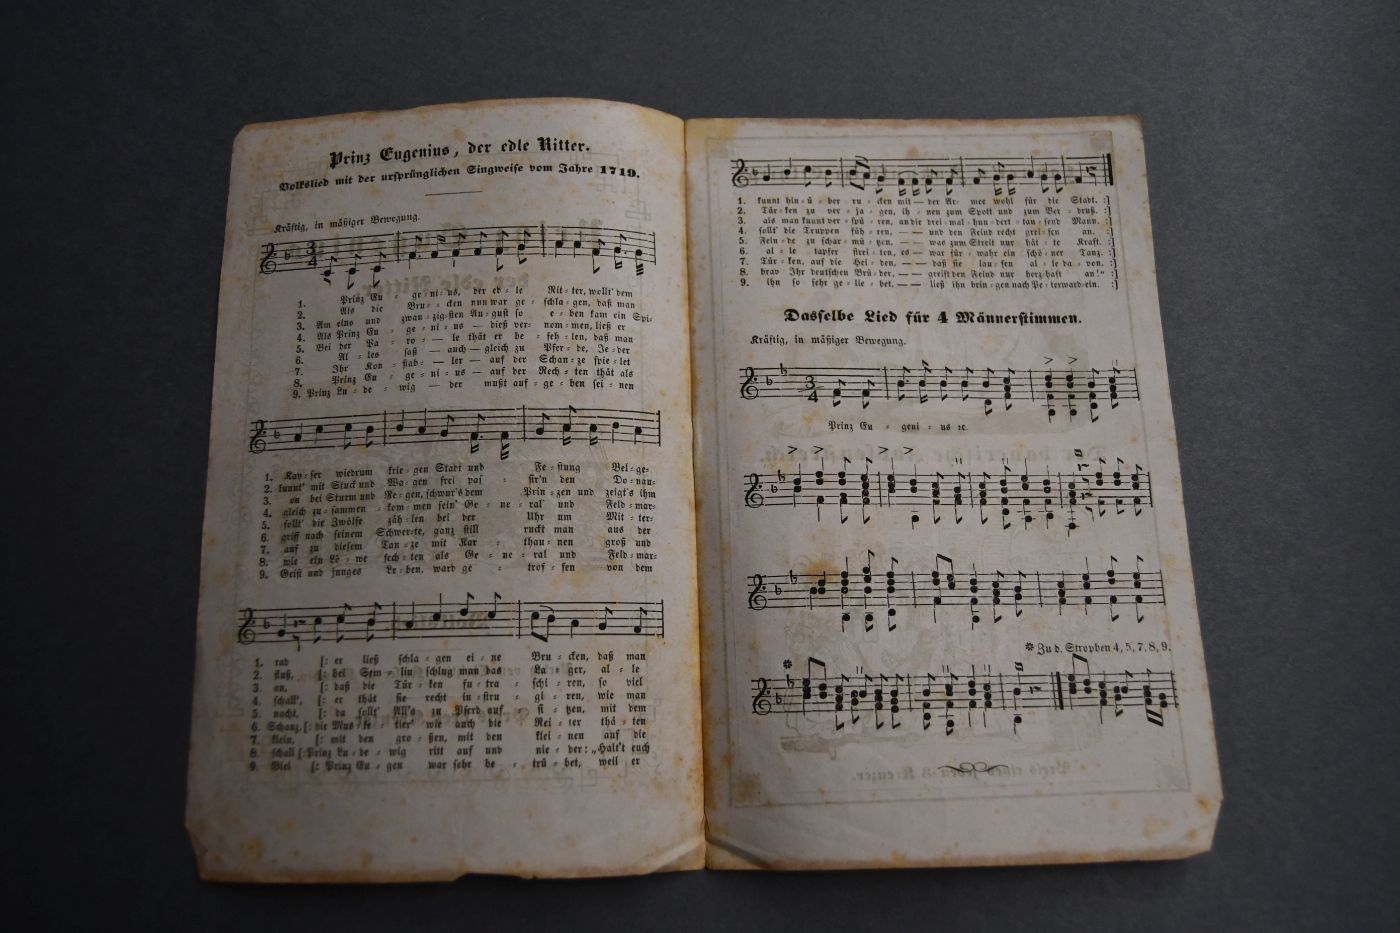 Prinz Eugenius, der edle Ritter.
Volkslied mit der ursprünglichen Singweise vom Jahre 1719.
Kräftig, in mäßiger Bewegung.
3 4
1. Prinz Eu - ge - ni - us, der ed - le Rit - ter, wollt' dem
2. Als die Bru - cken nun war ge - schla - gen, daß man
3. Am eino und zwan - zig - sten August so e - ben kam ein Spi -
4. Als Prinz Eu - ge - ni - us — dieß ver - nom - men, ließ er
5. Bei der Pa - ro - le thät er be - feh - len, daß man
6. Al - les saß — auch — gleich zu Pfer - de, Je - der
7. Ihr Kon - stab - ler — auf der Schan - ze spie - let
8. Prinz Eu - ge - ni - us — auf der Rech - ten thät als
9. Prinz Lu - de - wig — der mußt auf - ge - ben sei - nen
1. Kay - ser wiedrum krie - gen Stadt und Fe - stung Bel - ge -
2. kunnt' mit Stuck und Wa - gen frei pas - sir'n den Do - nau -
3. on bei Sturm und Re - gen, schwur's dem Prin - zen und zeigt's ihm
4. gleich zu - sammen - kom - men sein' Ge - ne - ral' und Feld - mar -
5. sollt' die Zwölfe zäh - len bei der Uhr um Mit - ter -
6. griff nach seinem Schwer - te, ganz still ruckt man aus der
7. auf zu diesem Tan - ze mit Kar - thau - nen groß und
8. wie ein Lö - we fech - ten als Ge - ne - ral und Feld - mar -
9. Geist und junges Le - ben, ward ge - trof - fen von dem
1. rad [: er ließ schla - gen ei - ne Bru - cken, daß man
2. fluß, [: bei Sem - lin schlug man das La - ger, al - le
3. an, [: daß die Tür - ken futra - schi - ren, so viel
4. schall', [: er thät sie recht in - stru - gi - ren, wie man
5. nacht, [: da sollt' All's zu Pferd auf - si - tzen, mit dem
6. Schanz, [: die Mus - ke - tier' wie auch die Rei - ter thä - ten
7. klein, [: mit den gro - ßen, mit den klei - nen auf die
8. schall [: Prinz Lu - de - wig ritt auf und nie - der: „Halt't euch
9. Blei [: Prinz Eu - gen war sehr be - trü - bet, weil er
1. kunnt hin - ü - ber ru - cken mit — der Ar - mee wohl für die Stadt. :]
2. Tür - ken zu ver - ja - gen, ih - nen zum Spott und zum Ver - druß. :]
3. als man kunnt ver - spü - ren, an die drei - mal - hun - dert - tau - send Mann. :]
4. sollt' die Truppen füh - ren, — — und den Feind recht grei - fen an. :]
5. Fein - de zu schar - mü - tzen, — — was zum Streit nur hät - te Kraft. :]
6. al - le tapfer strei - ten, es — war für - wahr ein schö - ner Tanz. :]
7. Tür - ken, auf die Hei - den, — — daß sie lau - fen al - le da - von. :]
8. brav Ihr deutschen Brü - der, — — greift den Feind nur herzhaft an!" :]
9. ihn so sehr ge - lie - bet, — — ließ ihn brin - gen nach Pe - terwardein. :]
Dasselbe Lied für 4 Männerstimmen.
Kräftig, in mäßiger Bewegung.
3 4
Prinz Eu - geni - us ꝛc.
* Zu d. Strophen 4, 5, 7, 8, 9.
*